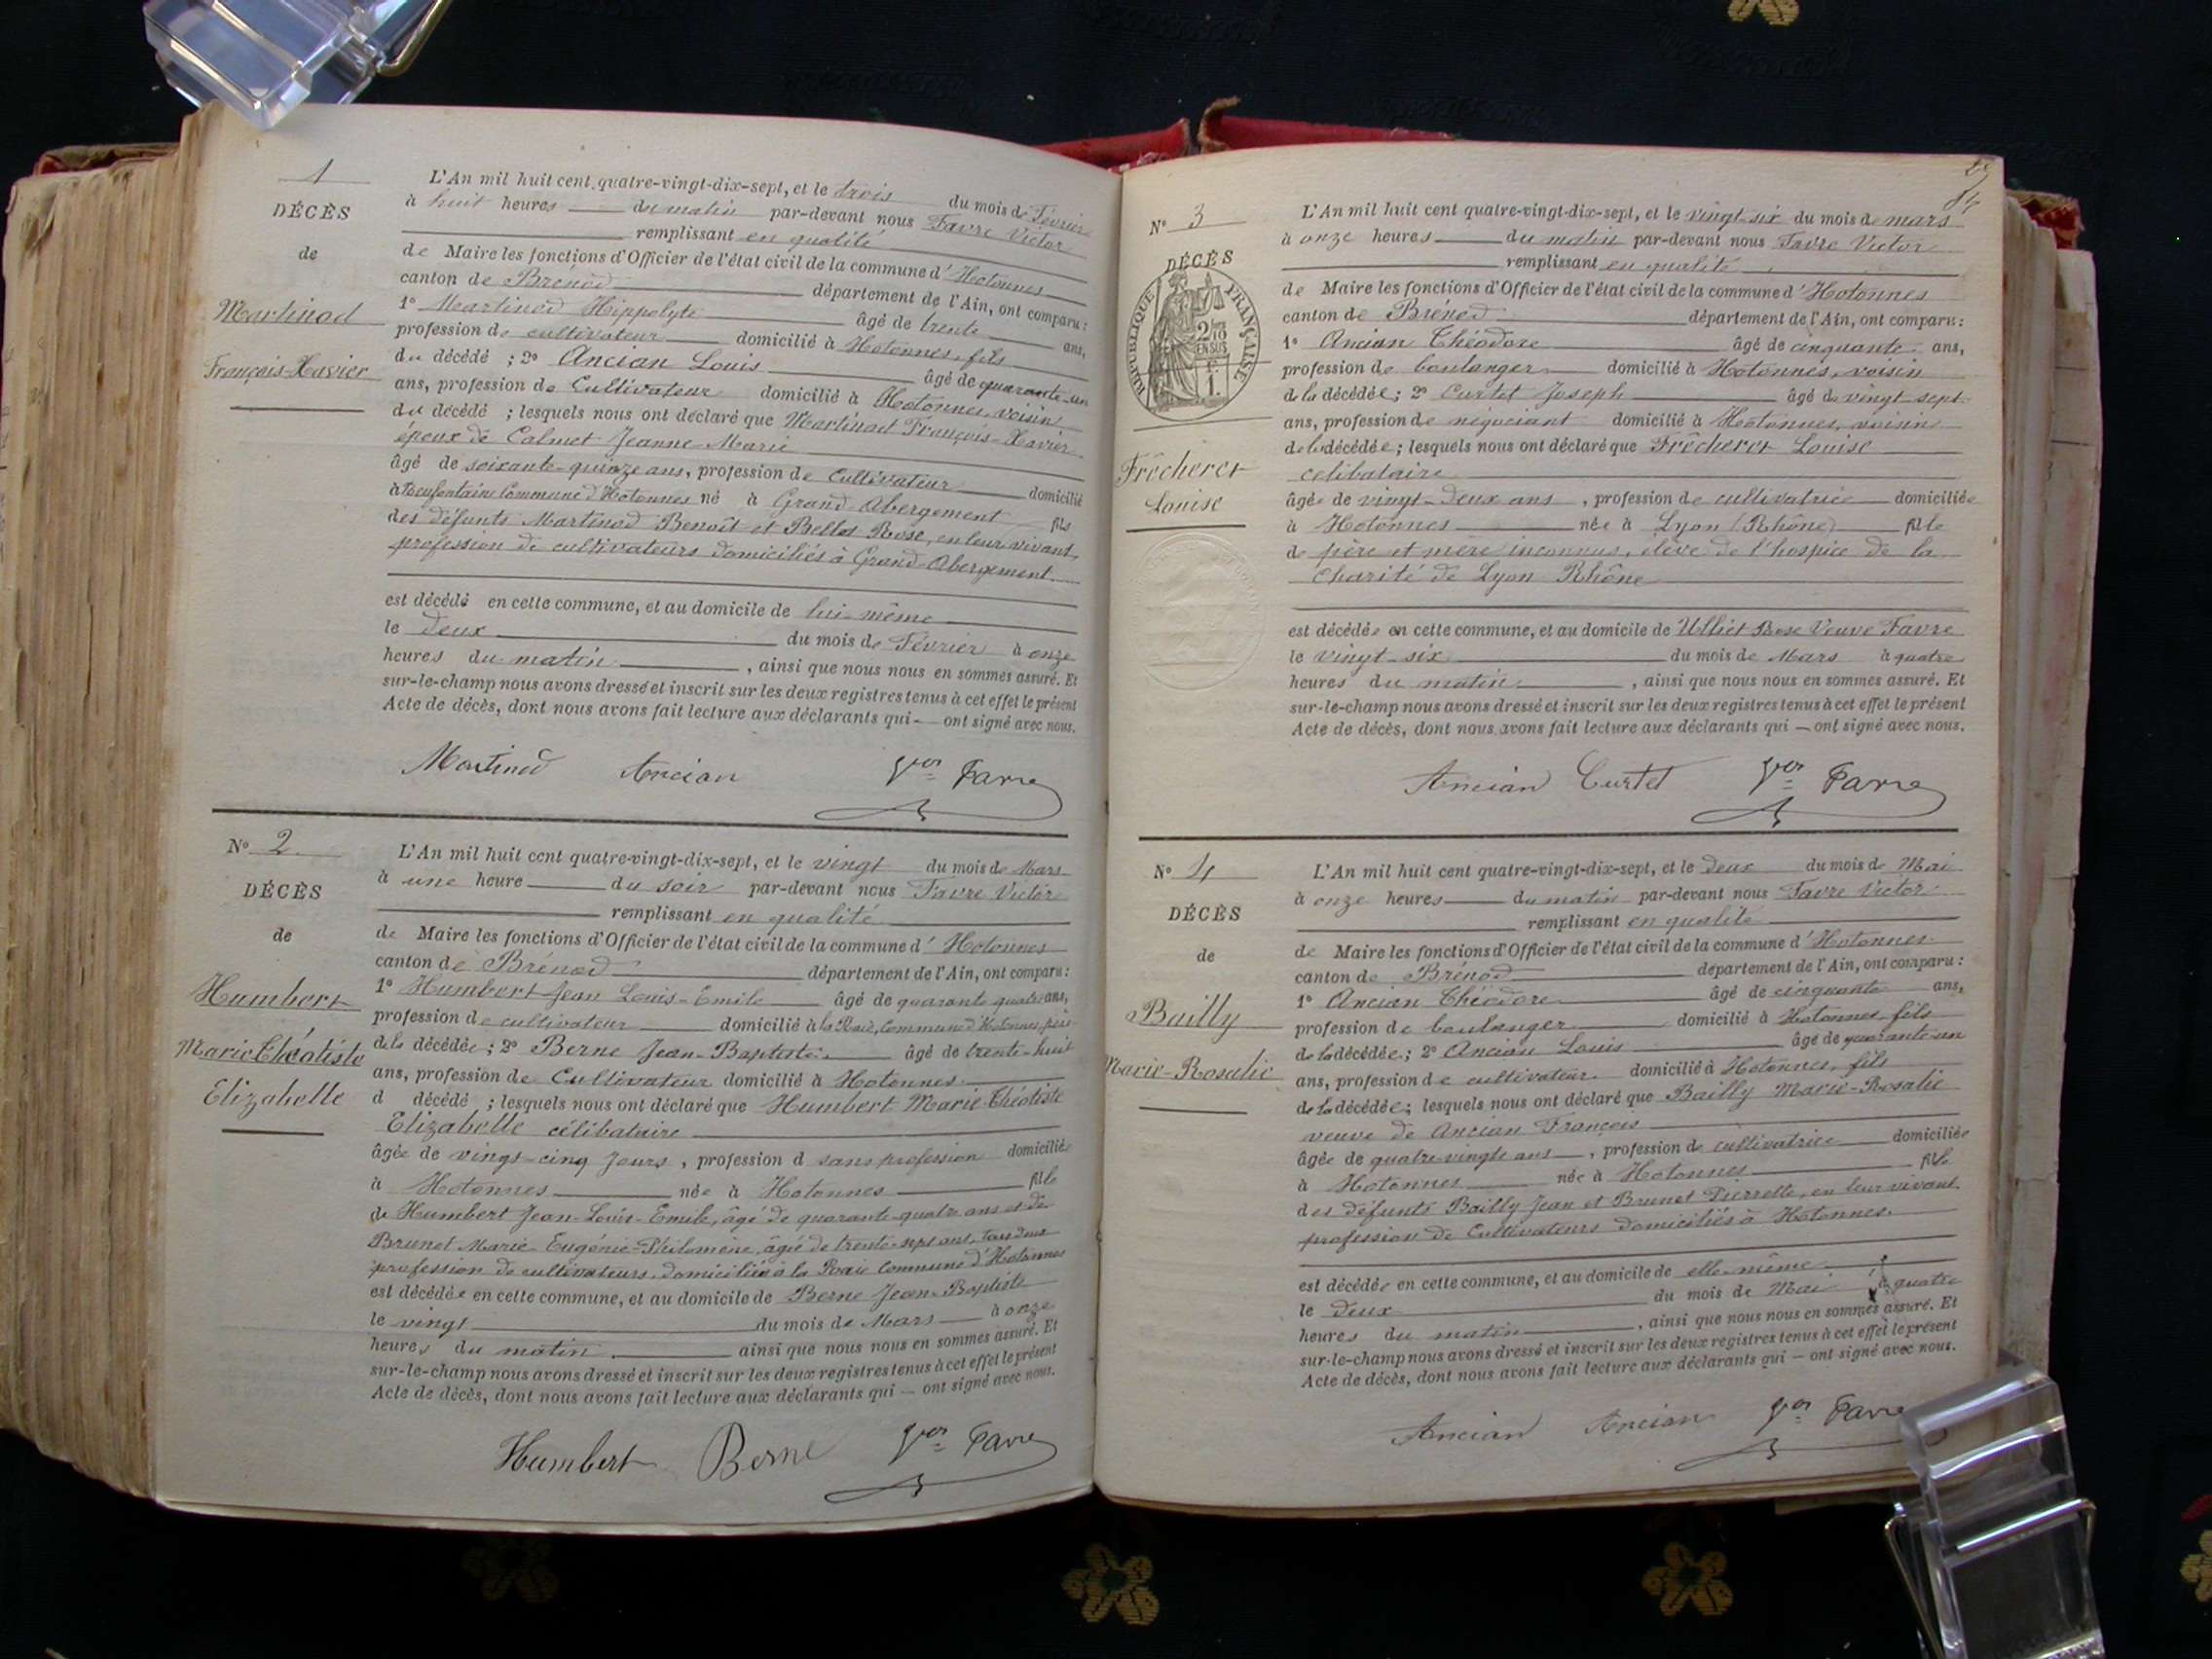 1
DÉCÈS
de
Martinod
François-Xavier
L'An mil huit cent quatre-vingt-dix-sept, et le trois du mois de Février
à huit heures du matin par-devant nous Favre Victor
remplissant en qualité
de Maire les fonctions d'Officier de l'état civil de la commune d'Hotonnes
canton de Brénod département de l'Ain, ont comparu :
1° Martinod Hippolyte âgé de trente ans,
profession de cultivateur domicilié à Hotonnes, fils
du décédé ; 2° Ancian Louis âgé de quarante-un
ans, profession de Cultivateur domicilié à Hotonnes, voisin
du décédé ; lesquels nous ont déclaré que Martinod François-Xavier
époux de Calmet Jeanne-Marie
âgé de soixante-quinze ans, profession de Cultivateur domicilié
à Commune d'Hotonnes né à Grand Abergement fils
des défunts Martinod Benoît et Bellod Rose, en leur vivant,
profession de cultivateurs domiciliés à Grand-Abergement
est décédé en cette commune, et au domicile de lui-même
le deux du mois de Février à onze
heures du matin, ainsi que nous nous en sommes assuré. Et
sur-le-champ nous avons dressé et inscrit sur les deux registres tenus à cet effet le présent
Acte de décès, dont nous avons fait lecture aux déclarants qui — ont signé avec nous.
Martinod Ancian Vor Favre
N° 2
DÉCÈS
de
Humbert
Marie Théotiste
Elizabelle
L'An mil huit cent quatre-vingt-dix-sept, et le vingt du mois de Mars
à une heure du soir par-devant nous Favre Victor
remplissant en qualité
de Maire les fonctions d'Officier de l'état civil de la commune d'Hotonnes
canton de Brénod département de l'Ain, ont comparu :
1° Humbert Jean Louis-Emile âgé de quarante quatre ans,
profession de cultivateur domicilié à la Raie, Commune d'Hotonnes, père
de la décédée ; 2° Berne Jean-Baptiste âgé de trente-huit
ans, profession de Cultivateur domicilié à Hotonnes
d décédé ; lesquels nous ont déclaré que Humbert Marie Théotiste
Elizabelle célibataire
âgée de vingt-cinq Jours, profession d sans profession domiciliée
à Hotonnes née à Hotonnes fille
de Humbert Jean-Louis-Emile, âgé de quarante-quatre ans et de
Brunet Marie Eugénie-Philomène, âgée de trente-sept ans, tous deux
profession de cultivateurs domiciliés à la Raie Commune d'Hotonnes
est décédée en cette commune, et au domicile de Berne Jean-Baptiste
le vingt du mois de Mars à onze
heures du matin ainsi que nous nous en sommes assuré. Et
sur-le-champ nous avons dressé et inscrit sur les deux registres tenus à cet effet le présent
Acte de décès, dont nous avons fait lecture aux déclarants qui — ont signé avec nous.
Humbert Berne Vor Favre
N° 3
DÉCÈS
RÉPUBLIQUE FRANÇAISE
2/10
EN SUS
Frécherer
Louise
L'An mil huit cent quatre-vingt-dix-sept, et le vingt-six du mois de mars
à onze heures du matin par-devant nous Favre Victor
remplissant en qualité
de Maire les fonctions d'Officier de l'état civil de la commune d'Hotonnes
canton de Brénod département de l'Ain, ont comparu :
1° Ancian Théodore âgé de cinquante ans,
profession de boulanger domicilié à Hotonnes, voisin
de la décédée ; 2° Curtet Joseph âgé de vingt-sept
ans, profession de négociant domicilié à Hotonnes, voisin
de la décédée ; lesquels nous ont déclaré que Frécherer Louise
célibataire
âgée de vingt-deux ans, profession de cultivatrice domiciliée
à Hotonnes née à Lyon (Rhône) fille
de père et mère inconnus, élève de l'hospice de la
Charité de Lyon Rhône
est décédée en cette commune, et au domicile de Ulliet Rose Veuve Favre
le vingt-six du mois de Mars à quatre
heures du matin, ainsi que nous nous en sommes assuré. Et
sur-le-champ nous avons dressé et inscrit sur les deux registres tenus à cet effet le présent
Acte de décès, dont nous avons fait lecture aux déclarants qui — ont signé avec nous.
Ancian Curtet Vor Favre
N° 4
DÉCÈS
de
Bailly
Marie-Rosalie
L'An mil huit cent quatre-vingt-dix-sept, et le deux du mois de Mai
à onze heures du matin par-devant nous Favre Victor
remplissant en qualité
de Maire les fonctions d'Officier de l'état civil de la commune d'Hotonnes
canton de Brénod département de l'Ain, ont comparu :
1° Ancian Théodore âgé de cinquante ans,
profession de boulanger domicilié à Hotonnes, fils
de la décédée ; 2° Ancian Louis âgé de quarante-un
ans, profession de cultivateur domicilié à Hotonnes, fils
de la décédée ; lesquels nous ont déclaré que Bailly Marie-Rosalie
veuve de Ancian François
âgée de quatre-vingts ans, profession de cultivatrice domiciliée
à Hotonnes née à Hotonnes fille
des défunts Bailly Jean et Brunet Pierrette, en leur vivant
profession de Cultivateurs domiciliés à Hotonnes.
est décédée en cette commune, et au domicile de elle-même
le deux du mois de Mai à quatre
heures du matin, ainsi que nous nous en sommes assuré. Et
sur-le-champ nous avons dressé et inscrit sur les deux registres tenus à cet effet le présent
Acte de décès, dont nous avons fait lecture aux déclarants qui — ont signé avec nous.
Ancian Ancian Vor Favre